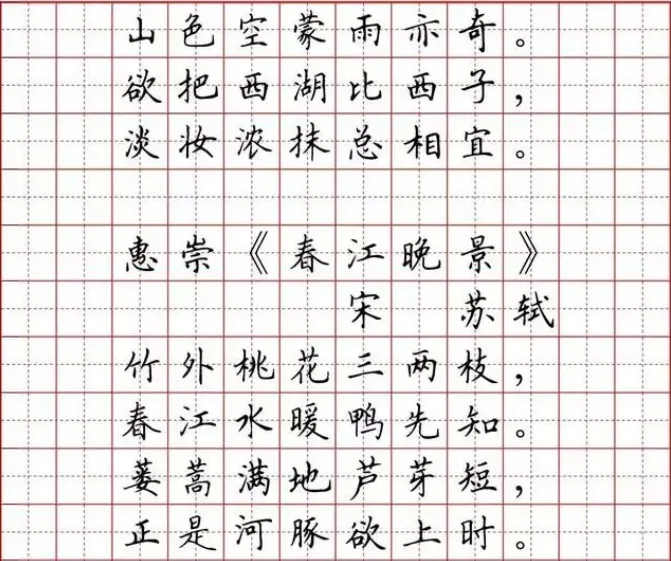 山色空蒙雨亦奇。
欲把西湖比西子，
淡妆浓抹总相宜。
惠崇《春江晚景》
宋 苏轼
竹外桃花三两枝，
春江水暖鸭先知。
蒌蒿满地芦芽短，
正是河豚欲上时。